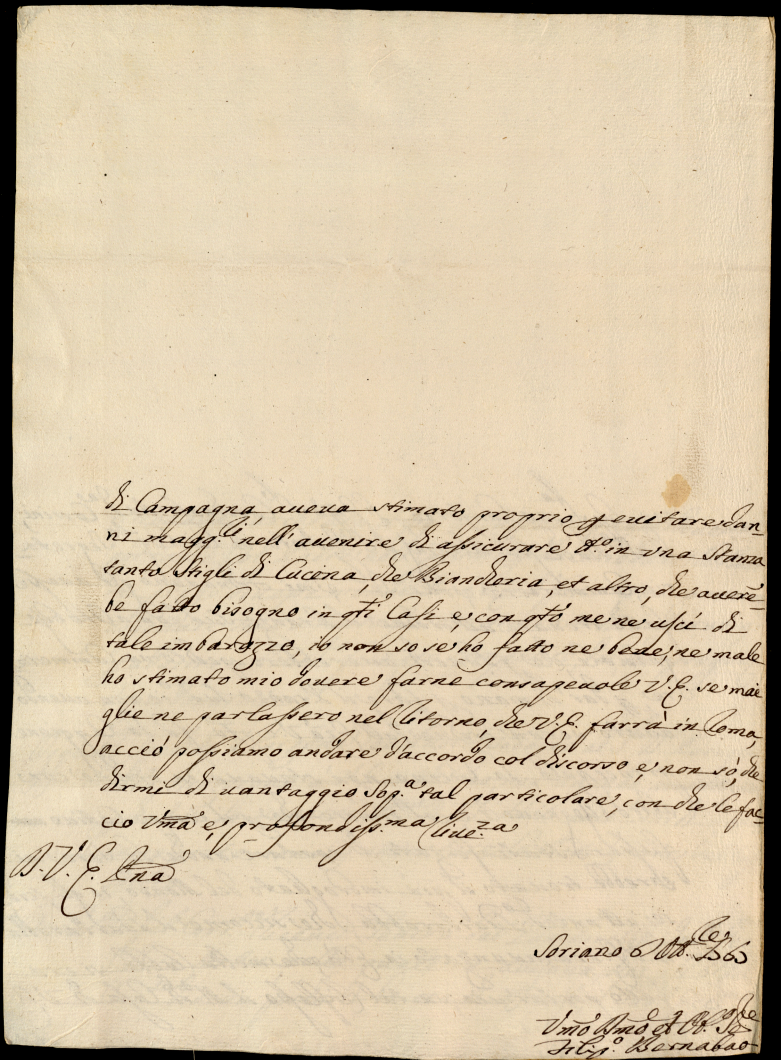 di Campagna, aveva stimato proprio p evitare dan-
ni magg.li nell'avenire di assicurare tt.o in una stanza
tanto stigli di Cucina, che Biancheria, et altro, che averê-
be fatto bisogno in qti Casi, e con qto me ne uscí di
tale imbarazzo, io non so se ho fatto ne bene, ne male
ho stimato mio dovere farne consapevole V. E. se mai
glie ne parlassero nel ritorno, che V. E. farrà in Roma,
acciò possiamo andare d'accordo col discorso e, non sò, che
dirmi di vantaggio sop.a tal particolare, con che le fac-
cio Vma e, profondiss.ma River.za
D. V. E. Cnã
Soriano 6 Ott.re
Vmo Dmo et Ob.
Filip.o Bernabao